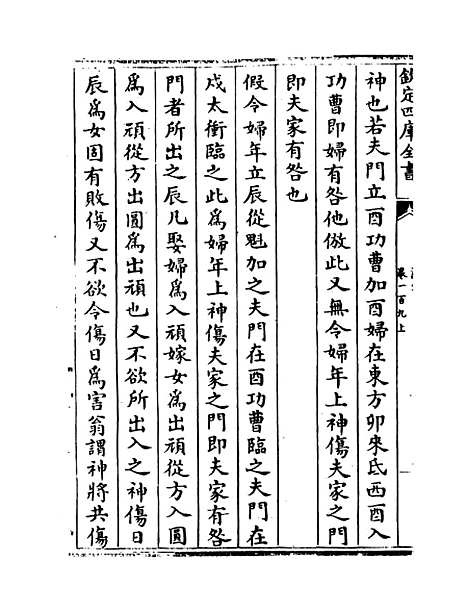 欽定四庫全書
卷一百九上
神也若夫門立酉功曹加酉婦在東方卯來氐西酉入
功曹即婦有咎他倣此又無令婦年上神傷夫家之門
即夫家有咎也
假令婦年立辰從魁加之夫門在酉功曹臨之夫門在
戍太衝臨之此為婦年上神傷夫家之門即夫家有咎
門者所出之辰凡娶婦為入頑嫁女為出頑從方入圓
為入頑從方出圓為出頑也又不欲所出入之神傷日
辰為女固有敗傷又不欲令傷日為害翁謂神將共傷